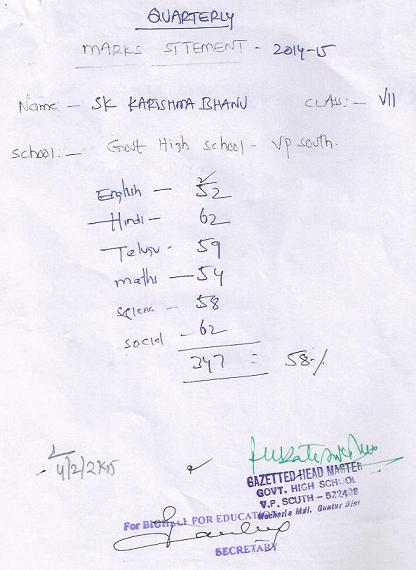 QUARTERLY
MARKS STTEMENT - 2014-15
Name:- SK KARISHMA BHANU CLASS:- VII
School:- Govt High school - Vp south.
English - 52
Hindi - 62
Telugu - 59
maths - 54
Science - 58
social - 62
347 = 58%
4/2/2015
GAZETTED HEAD MASTER
GOVT. HIGH SCHOOL
V.P. SOUTH - 522429
Macherla Mdl. Guntur Dist
FOR EDUCATION
SECRETARY